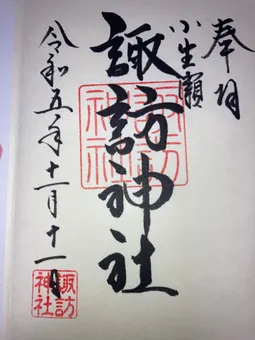 奉拝
小生瀬
諏訪神社
諏訪
神社
令和五年十一月十一日
諏訪
神社